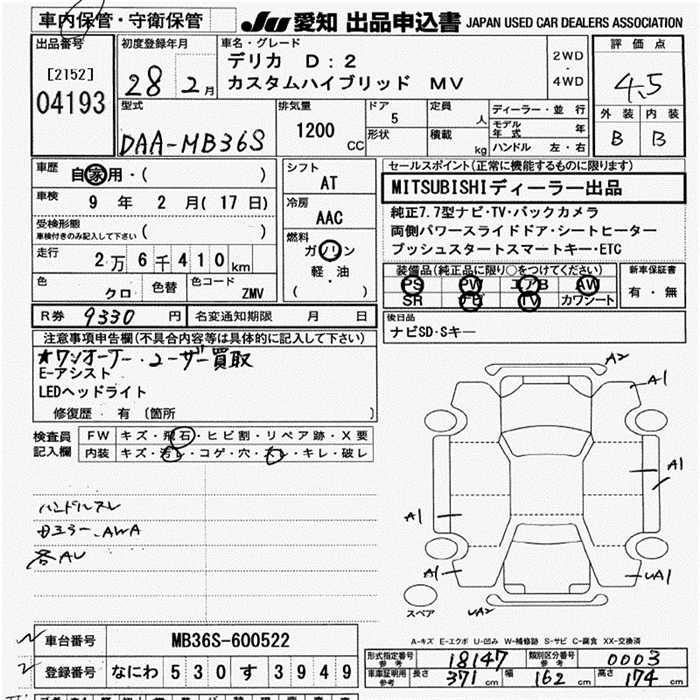 車内保管・守衛保管
JU 愛知 出品申込書 JAPAN USED CAR DEALERS ASSOCIATION
出品番号
[2152]
04193
初度登録年月
28 2月
車名・グレード
デリカ D:2
カスタムハイブリッド MV
2WD
・
4WD
評価点
4.5
外装 内装
B B
型式
DAA-MB36S
排気量
1200
CC
ドア
5
形状
定員
人
積載
kg
ディーラー・並行
モデル年式 年
ハンドル 左・右
車歴
自家用・( )
車検
9 年 2 月(17日)
受検形態
車検付きのみ記入して下さい ( )
走行
2万6千410km
色
クロ
色替
色コード
ZMV
シフト
AT
冷房
AAC
燃料
ガソリン
軽・油
( )
セールスポイント(正常に機能するものに限ります)
MITSUBISHIディーラー出品
純正7.7型ナビ・TV・バックカメラ
両側パワースライドドア・シートヒーター
プッシュスタートスマートキー・ETC
装備品(純正品に限り○をつけてください)
PS PW エアB AW
SR ナビ TV カワシート
新車保証書
有・無
R券 9330 円
名変通知期限 月 日
後日品
ナビSD・Sキー
注意事項申告欄(不具合内容等は具体的に記入して下さい)
★ワンオーナー・ユーザー買取
E-アシスト
LEDヘッドライト
修復歴・有(箇所 )
検査員
記入欄
FW キズ・飛石・ヒビ割・リペア跡・X要
内装 キズ・汚レ・コゲ・穴・スレ・キレ・破レ
ハンドルスレ
各AU
A2
A1
A1
A1
A1
UA1
UA2
スペア
A-キズ E-エクボ U-凹み W-補修跡 S-サビ C-腐食 XX-交換済
車台番号 MB36S-600522
登録番号 なにわ 530 す 3949
形式指定番号
参考
18147
類別区分番号
参考
0003
車庫証明用
参考
長さ 371 cm 幅 162 cm 高さ 174 cm